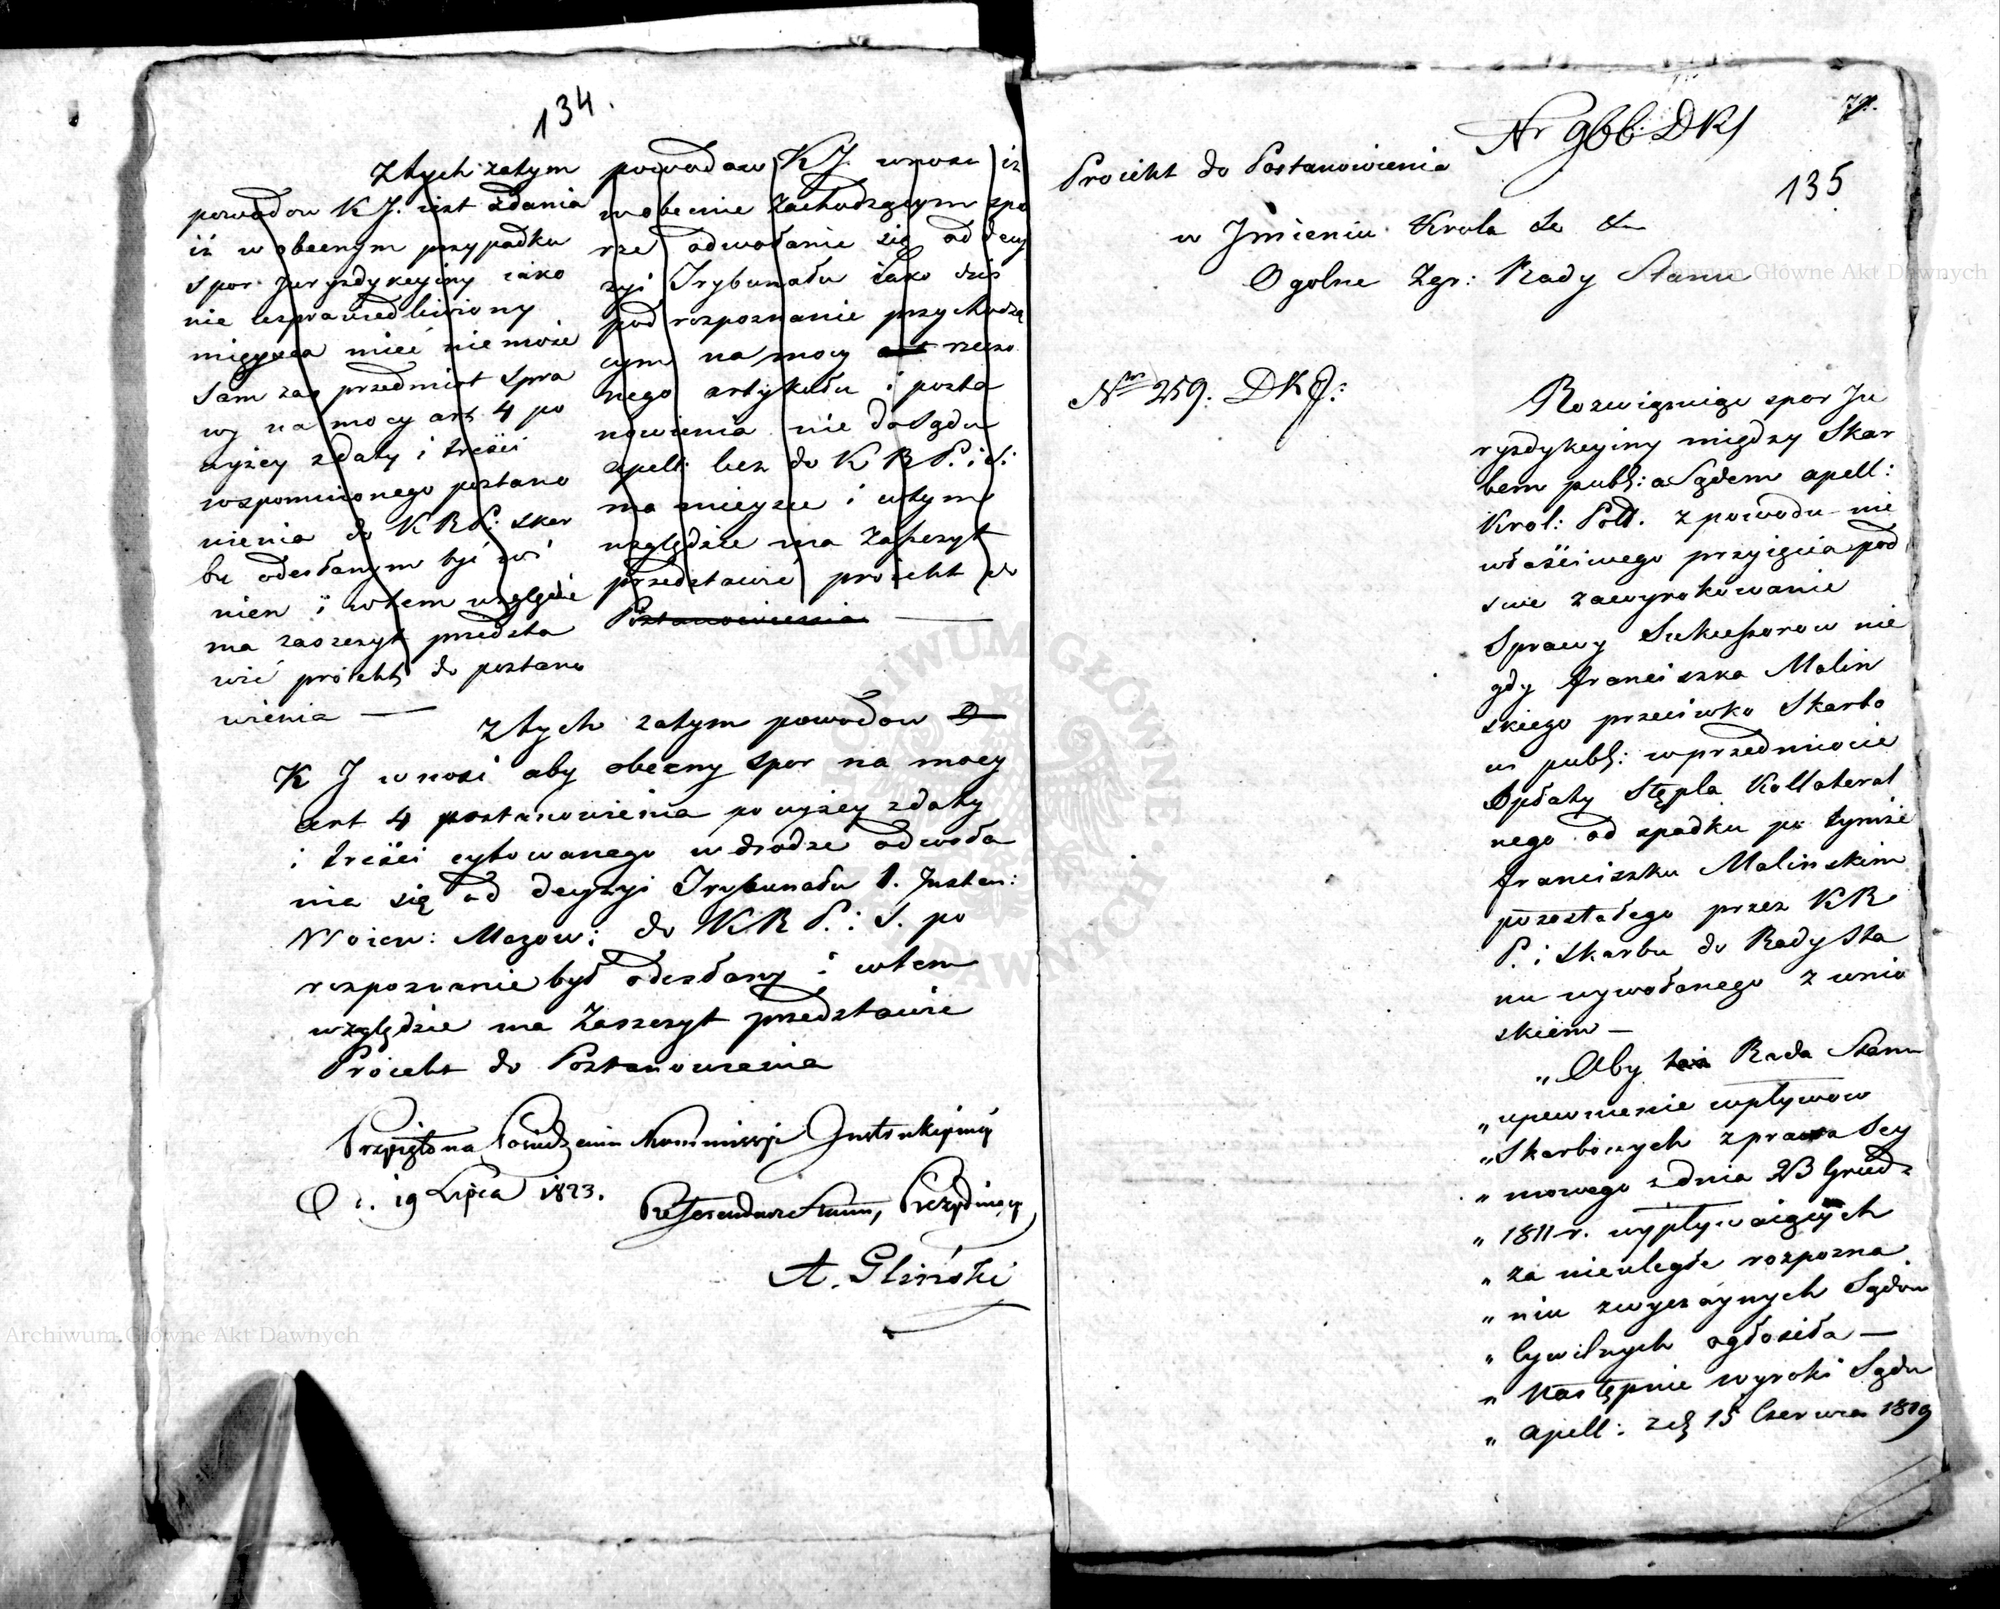 134.
Z tych zatym
powodow K J. iest zdania
iż w obecnym przypadku
spor Juryzdykcyiny iako
nie usprawiedliwiony
mieysca mieć nie może
sam zas przedmiot spra
wy na mocy art 4 po
wyżey z daty i treści
wspomnionego postano
wienia do K R P: Skar
bu odesłanym być wi
nien i w tem względzie
ma zaszczyt przedsta
wić proiekt do postano
wienia —
powodow K J. wnosi iż
w obecnie zachodzącym spo
rze odwołanie się od decy
zyi Trybunału iako dziś
pod rozpoznanie przychodzą
cym na mocy art rzeczo
nego artykułu i posta
nowienia nie do Sądu
apell: lecz do K R P. i S:
ma mieysce i w tym
względzie ma zaszczyt
przedstawić proiekt do
Postanowienia —
Z tych zatym powodow
K J wnosi aby obecny spor na mocy
art 4 postanowienia powyżey z daty
i treści cytowanego w drodze odwoła
nia się od decyzyi Trybunału 1. Instan:
Woiew: Mazow: do K R P. i S. po
rozpoznanie był odesłany i w tem
względzie ma zaszczyt przedstawić
Proiekt do Postanowienia
Przyięto na Posiedzeniu Kommissyi Instrukcyiney
D. 19 Lipca 1823.
Referendarz Stanu, Prezyduiący
A. Gliński
Nr 966: DKJ
135
Proiekt do Postanowienia
w Jmieniu Krola &c &c
Ogolne Zgr: Rady Stanu
Nr 259. DKJ:
Rozwiązuiąc spor Ju
ryzdykcyiny między Skar
bem publ: a Sądem apell:
Krol: Pols. z powodu nie
właściwego przyięcia pod
swe zawyrokowanie
Sprawy Sukcessorow nie
gdy Franciszka Malin
skiego przeciwko Skarbo
wi publ: w przedmiocie
Opłaty Stępla Kollateral
nego od spadku po tymże
Franciszku Malinskim
pozostałego przez K R
P. i Skarbu do Rady Sta
nu wywołanego z wnio
skiem —
„ Aby Rada Stanu
„ upewnienie wpływow
„ Skarbowych z prawa Sey
„ mowego z dnia 23 Grud
„ 1811 r. wypływaiących
„ za nieuległe rozpozna
„ niu zwyczaynych Sądow
„ Cywilnych ogłosiła —
„ Następnie wyroki Sądu
„ apell: z d 15 Czerwca 1819
Archiwum Główne Akt Dawnych
Archiwum Główne Akt Dawnych
ARCHIWUM GŁÓWNE AKT DAWNYCH